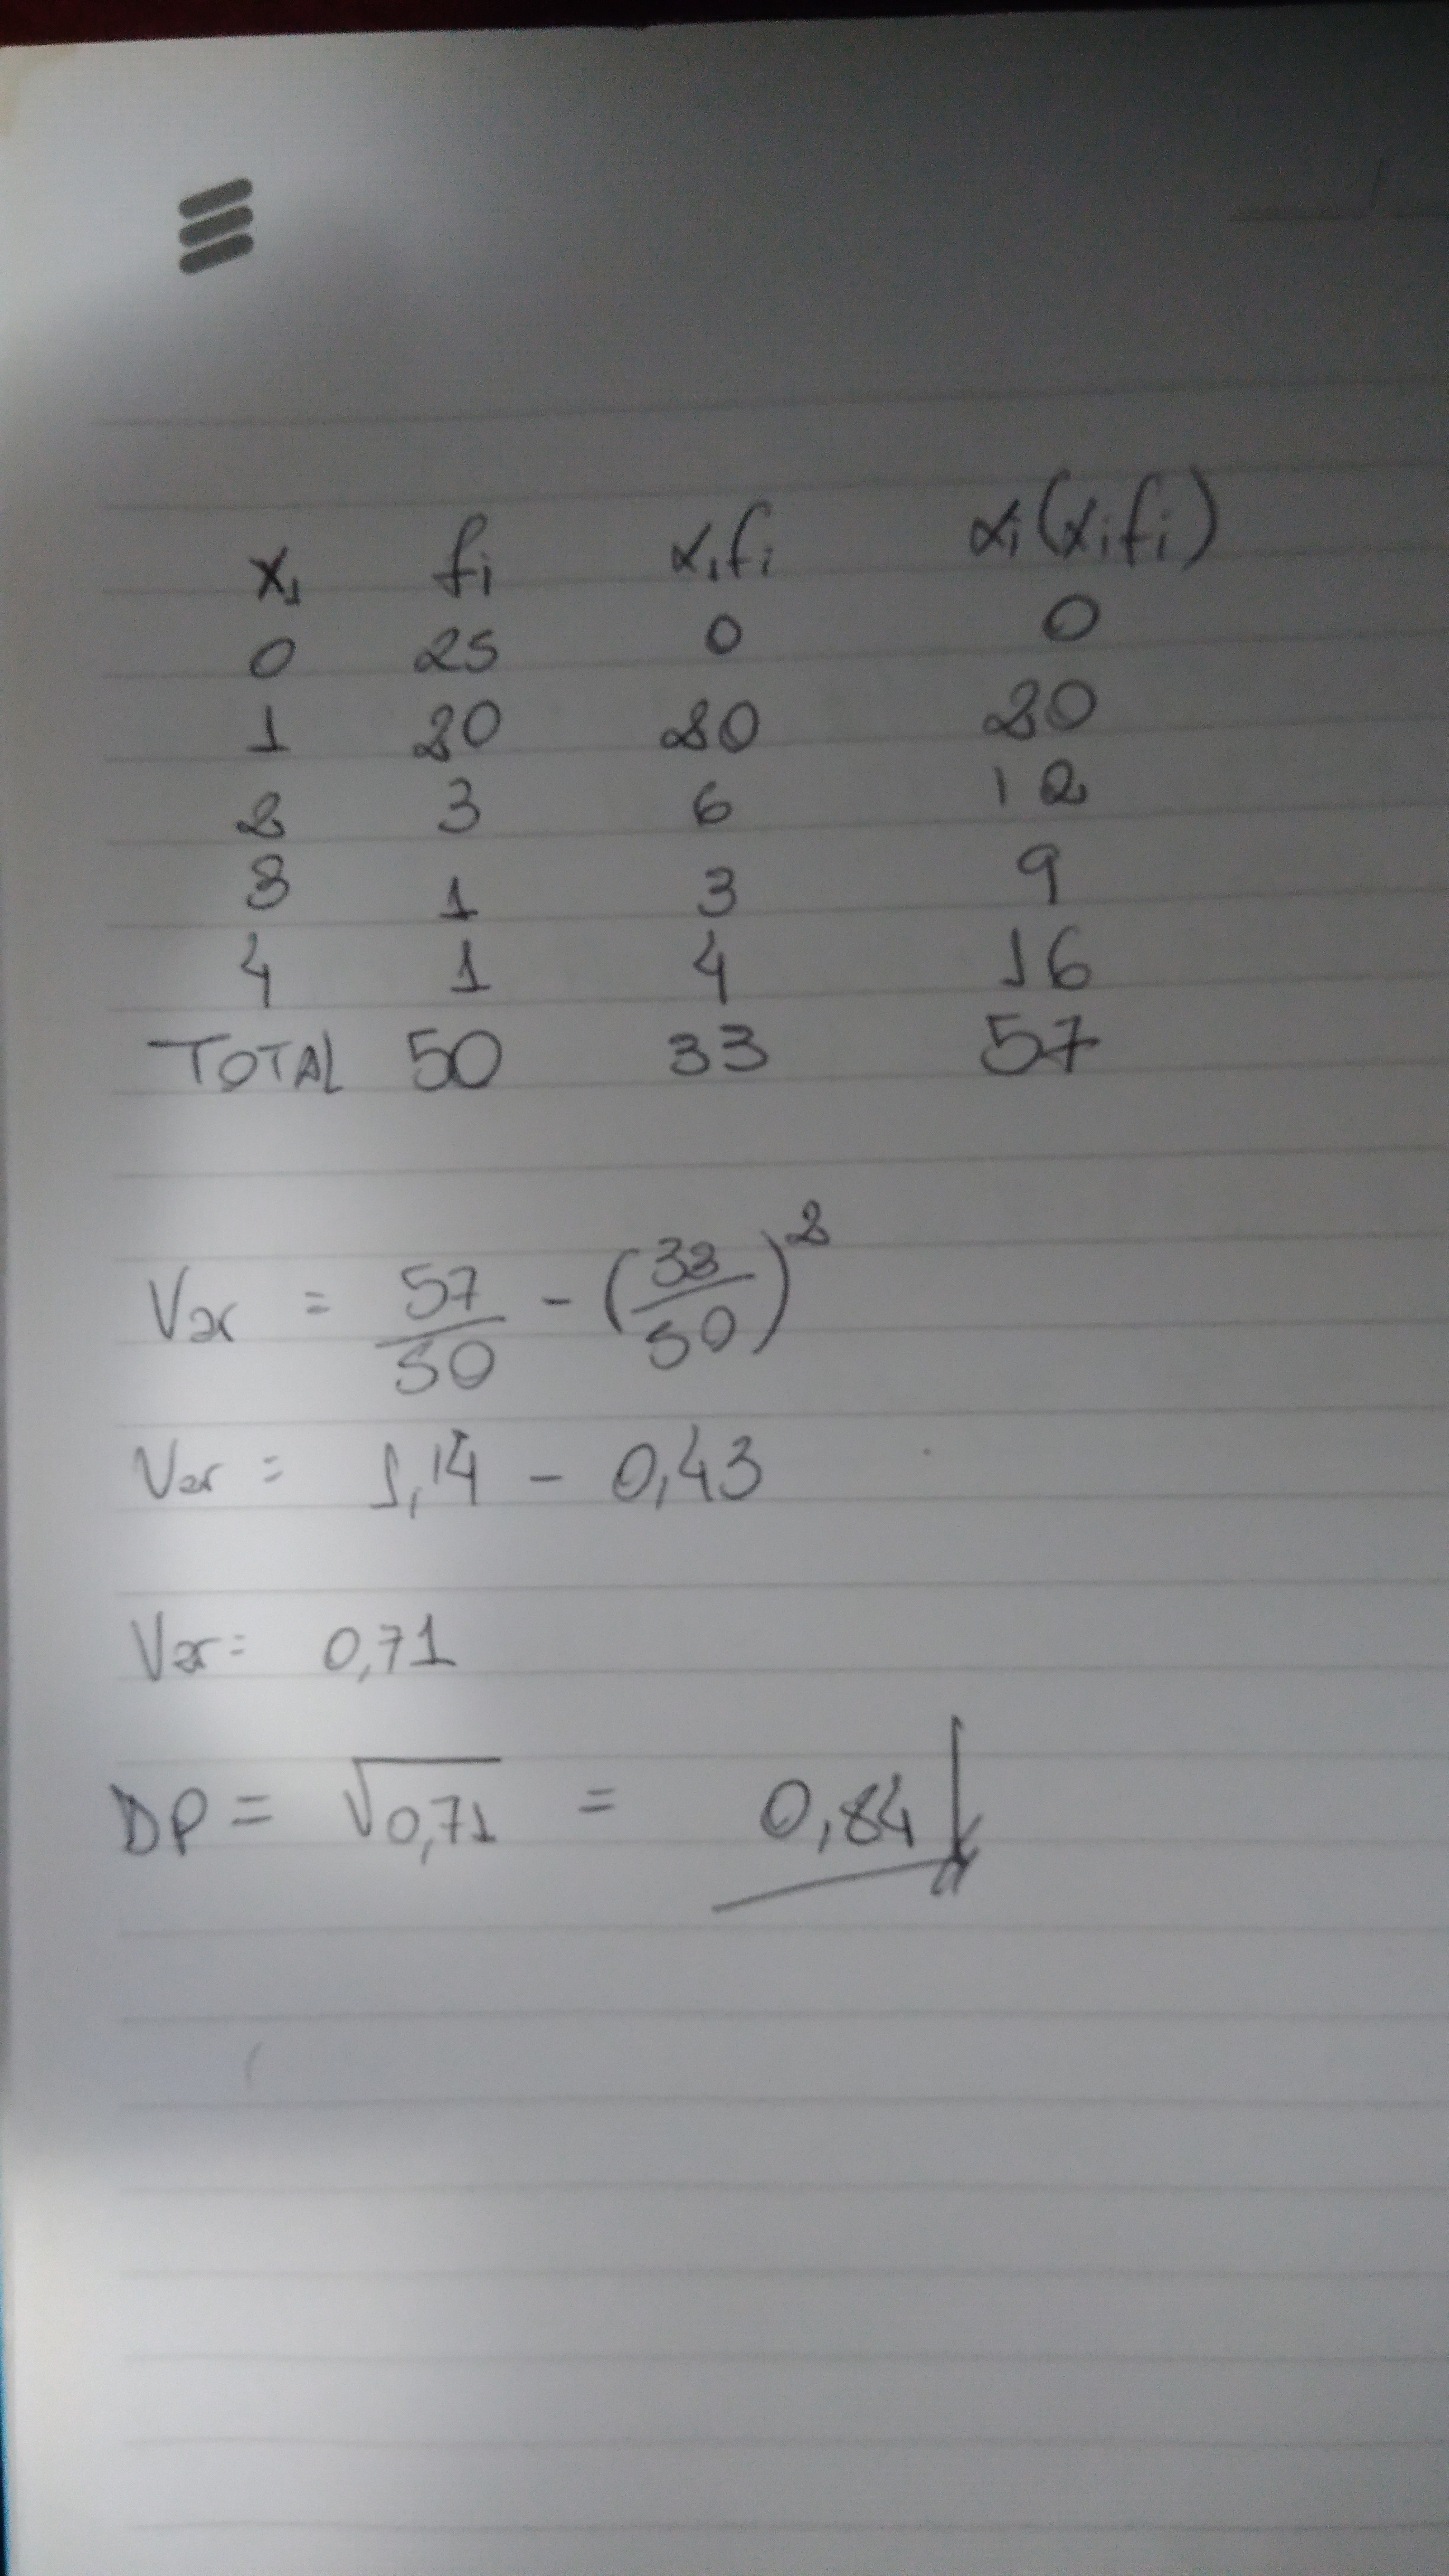 xi fi xifi xi(xifi)
0 25 0 0
1 20 20 20
2 3 6 12
3 1 3 9
4 1 4 16
TOTAL 50 33 57
Var = 57/50 - (33/50)²
Var = 1,14 - 0,43
Var = 0,71
DP = √0,71 = 0,84